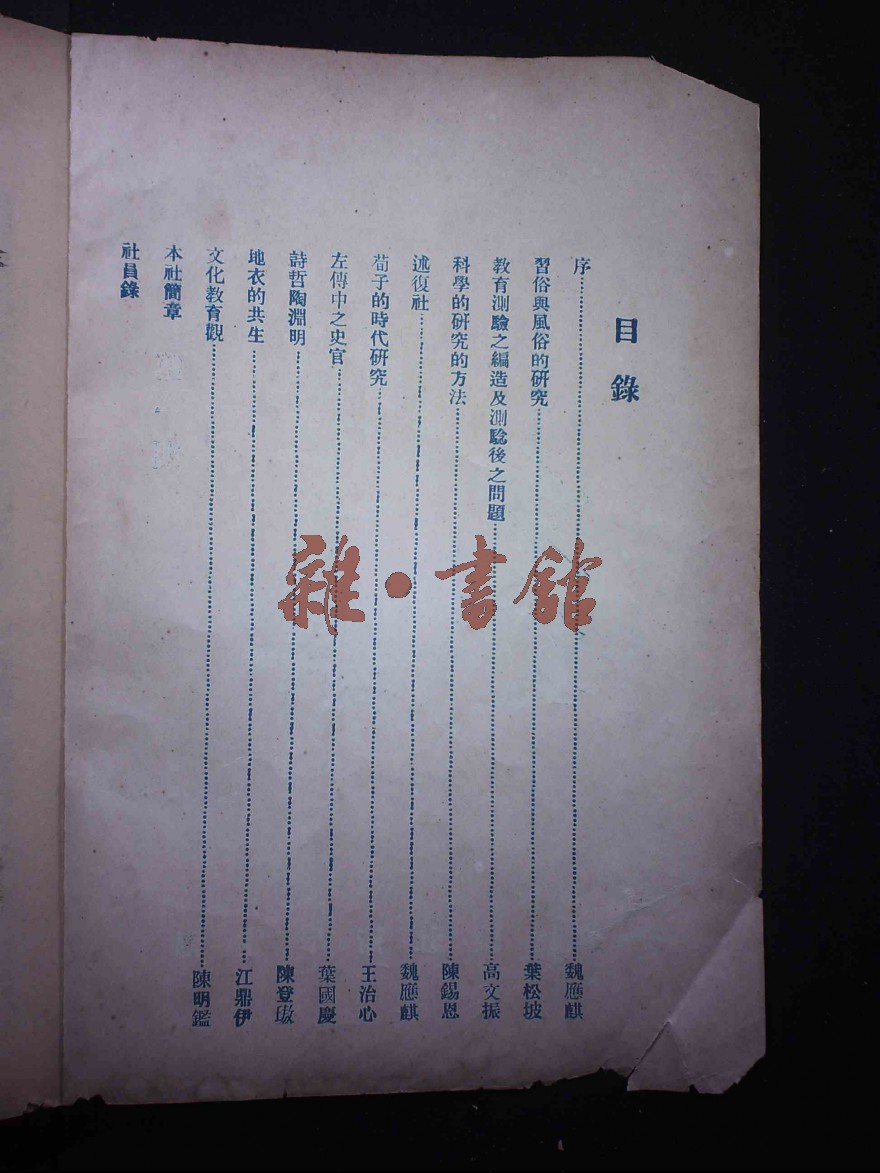 目錄
序……魏應麒
習俗與風俗的研究……葉松坡
教育測驗之編造及測驗後之問題……高文振
科學的研究的方法……陳錫恩
述復社……魏應麒
荀子的時代研究……王治心
左傳中之史官……葉國慶
詩哲陶淵明……陳登璈
地衣的共生……江鼎伊
文化教育觀……陳明鑑
本社簡章
社員錄
雜·書館